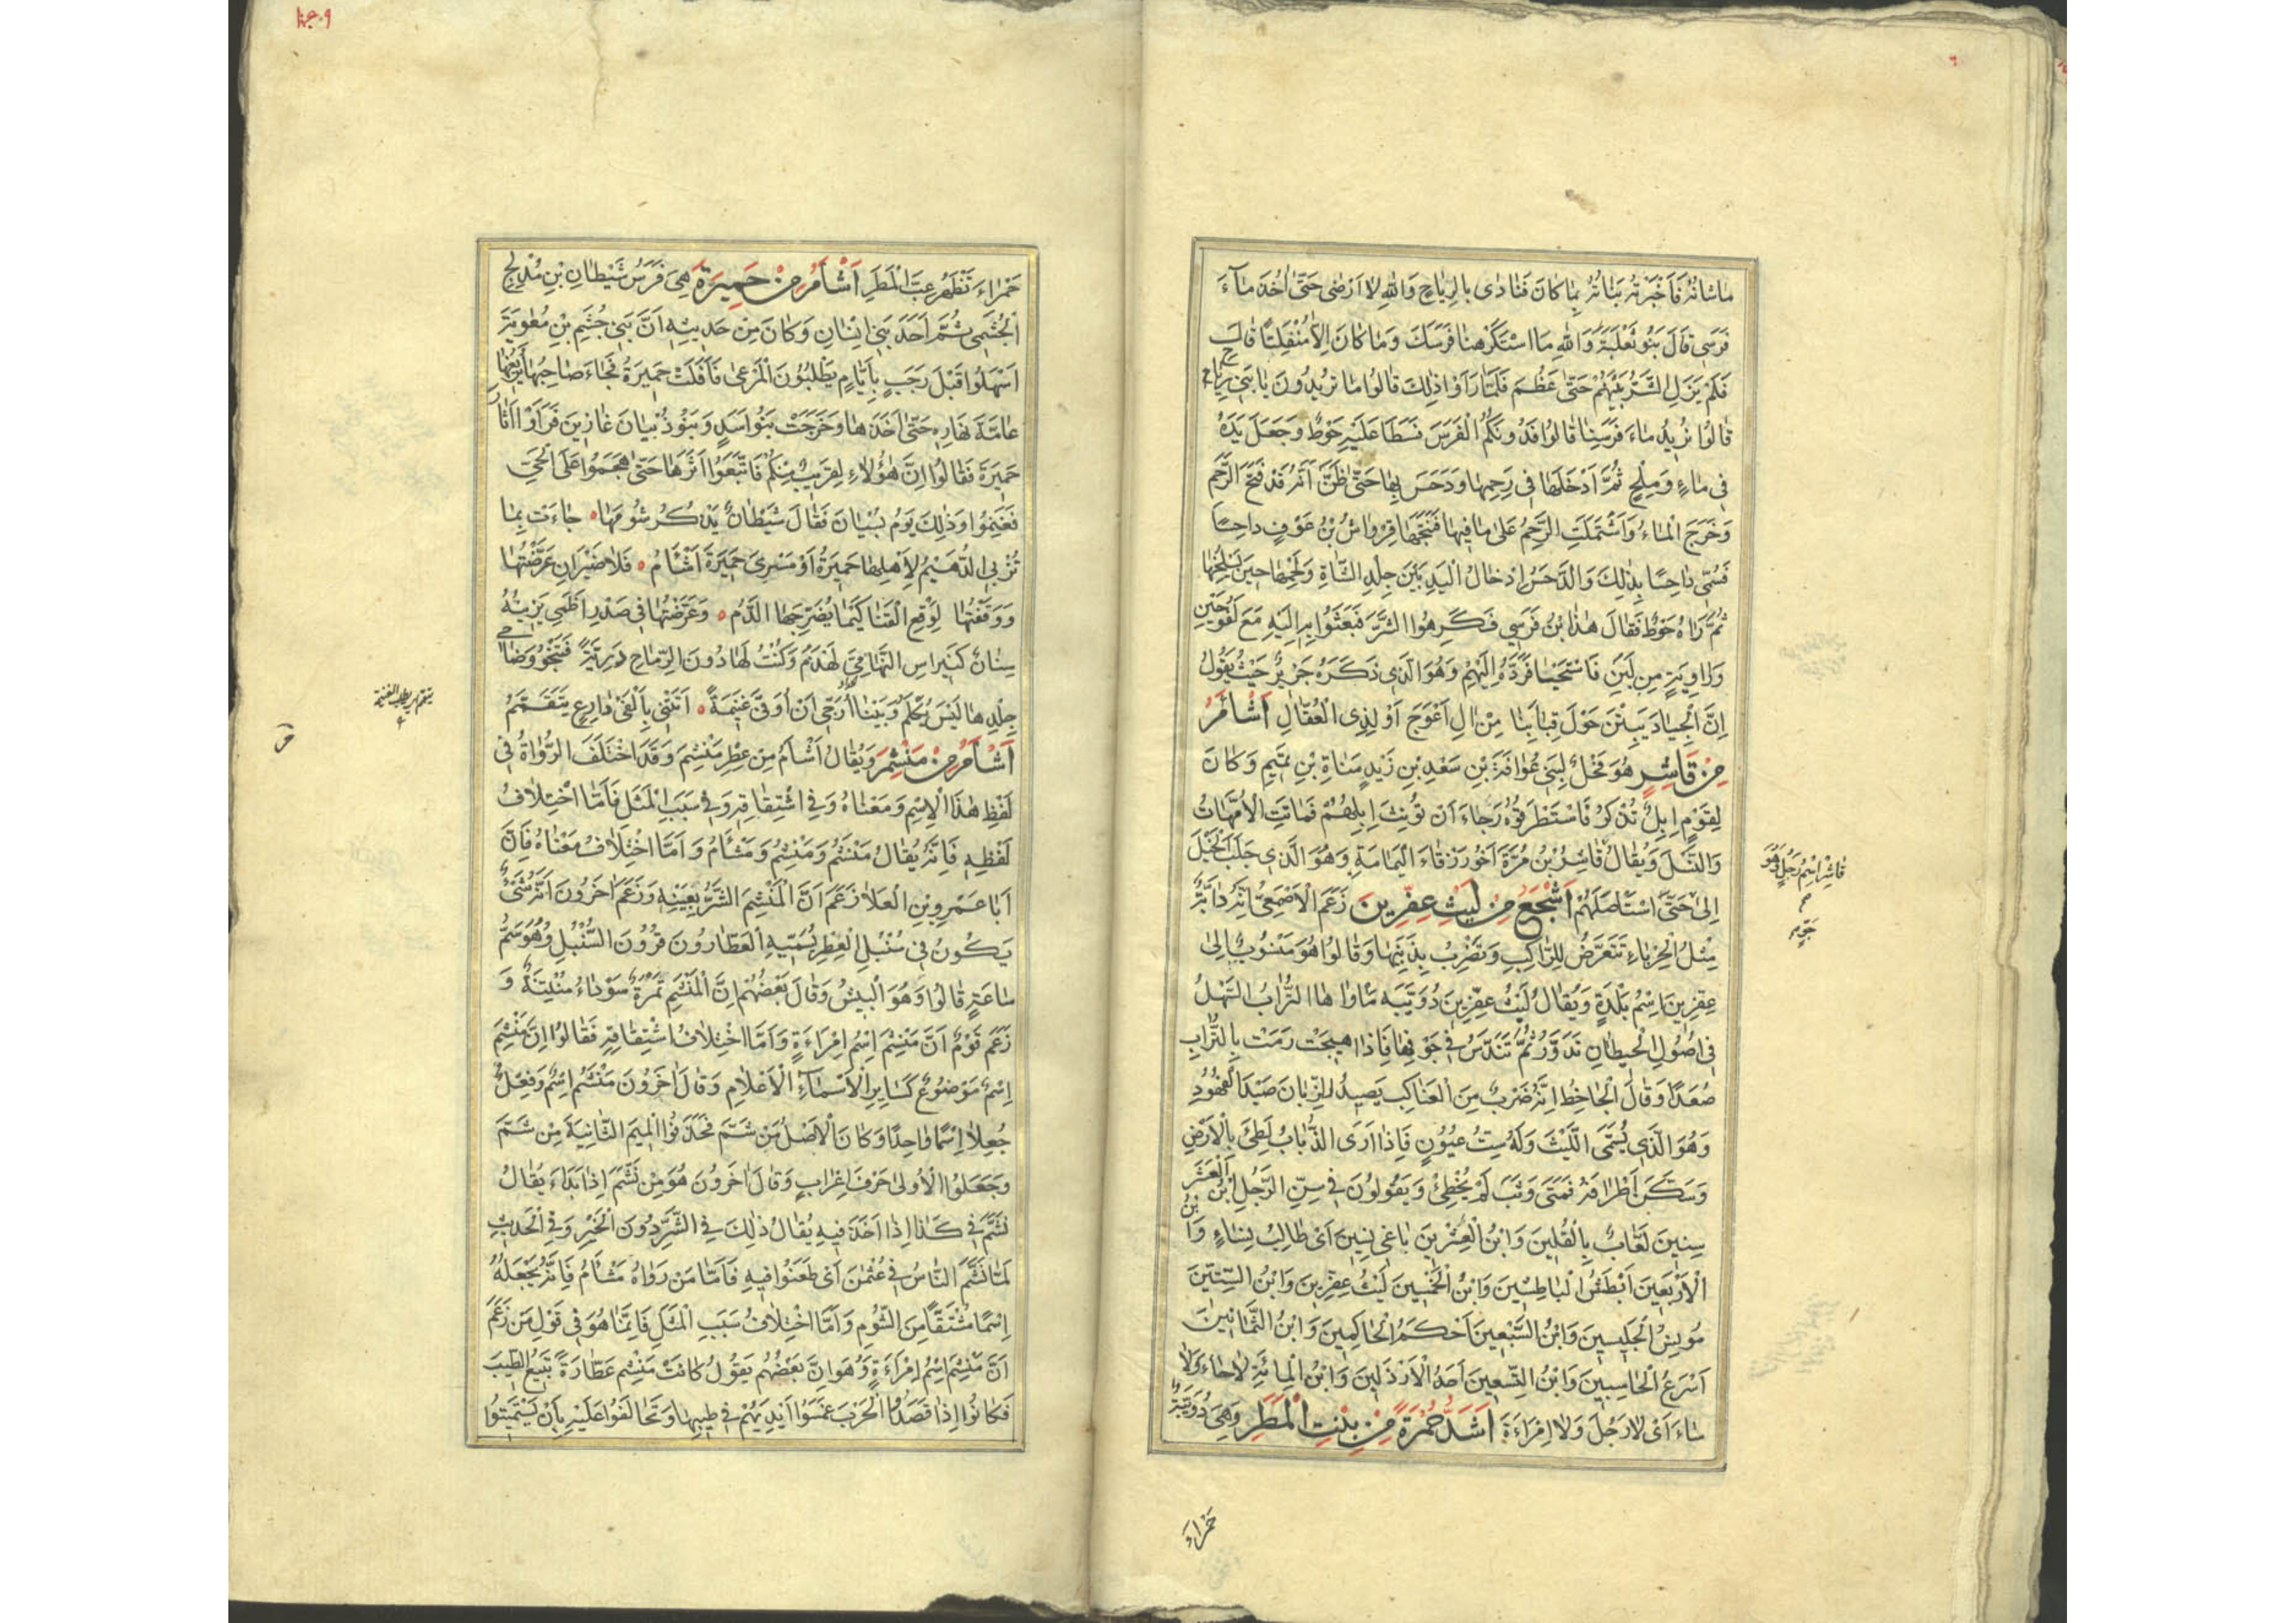 ما شانه فَاَخْبَرَتْهُ بَناتُه بِما كانَ فَنادٰى يالرِياحٍ وَاللّٰهِ لا اَرْضٰى حَتّٰى اٰخُذَ مآءَ
فَرَسى قالَ بَنُو ثَعْلَبَةَ وَاللّٰهِ مَا اسْتَكْرَهْنا فَرَسَكَ وَما كانَ اِلّا مُنْفَلِتًا قالَ
فَلَمْ يَزَلِ الشَّرُّ بَيْنَهُمْ حَتّٰى عَظُمَ فَلَمّا رَاَوْا ذٰلِكَ قالُوا ما تُريدُونَ يا بَنى رِياحٍ
قالُوا نُريدُ ماءَ فَرَسِنا قالُوا فَدُونَكُمُ الْفَرَسَ فَسَطا عَلَيْهِ حَوْطٌ وَجَعَلَ يَدَهُ
فى ماءٍ وَمِلْحٍ ثُمَّ اَدْخَلَها فى رَحِمِها وَدَحَسَ بِها حَتّٰى ظَنَّ اَنَّهُ قَدْ فَتَحَ الرَّحِمَ
وَخَرَجَ الْماءُ وَاشْتَمَلَتِ الرَّحِمُ عَلٰى ما فيها فَنَتَجَها قِرْواشُ بْنُ عَوْفٍ داحِسًا
فَسُمّى داحِسًا بِذٰلِكَ وَالدَّحَسُ اِدْخالُ الْيَدِ بَيْنَ جِلْدِ الشّاةِ وَلَحْمِها حينَ يَسْلُخُها
ثُمَّ رَاٰهُ حَوْطٌ فَقالَ هٰذَا ابْنُ فَرَسى فَكَرِهُوا الشَّرَّ فَبَعَثُوا بِهِ اِلَيْهِ مَعَ لَقُوحَيْنِ
وَراوِيَةٍ مِنْ لَبَنٍ فَاسْتَحْيٰا فَرَدَّهُ اِلَيْهِمْ وَهُوَ الَّذى ذَكَرَهُ جَريرٌ حَيْثُ يَقُولُ
اِنَّ الْجِيادَ يَبِتْنَ حَوْلَ قِبابِنا مِنْ اٰلِ اَعْوَجَ اَوْ لِذِى الْعُقّالِ اَشْاَمُ
مِنْ قاشِرٍ هُوَ فَحْلٌ لِبَنى عُوافَةَ بْنِ سَعْدِ بْنِ زَيْدِ مَناةِ بْنِ تَميمٍ وَكانَ
لِقَوْمٍ اِبِلٌ تُذْكِرُ فَاسْتَطْرَقُوهُ رَجاءَ اَنْ تُؤْنِثَ اِبِلُهُمْ فَماتَتِ الْاُمَّهاتُ
وَالنَّسْلَ وَيُقالُ قاشِرُ بْنُ مُرَّةَ اَخُو زَرْقاءَ الْيَمامَةِ وَهُوَ الَّذى جَلَبَ الْخَيْلَ
اِلىٰ حَتَّى اسْتَاْصَلَهُمْ اَشْجَعُ مِنْ لَيْثِ عِفِرّينَ زَعَمَ الْاَصْمَعِىُّ اَنَّهُ دابَّةٌ
مِثْلُ الْحِرْباءِ تَتَعَرَّضُ لِلرّاكِبِ وَتَضْرِبُ بِذَنَبِها وَقالُوا هُوَ مَنْسُوبٌ اِلىٰ
عِفِرّينَ اِسْمُ بَلْدَةٍ وَيُقالُ لَيْثُ عِفِرّينَ دُوَيْبَّةٌ مَاْواهَا التُّرابُ السَّهْلُ
فى اُصُولِ الْحيطانِ تَدَوَّرُ ثُمَّ تَنْدَسُّ فى جَوْفِها فَاِذا هيجَتْ رَمَتْ بِالتُّرابِ
صُعَدًا وَقالَ الْجاحِظُ اِنَّهُ ضَرْبٌ مِنَ الْعَناكِبِ يَصيدُ الذِّبانَ صَيْدَ الْفُهُودِ
وَهُوَ الَّذى يُسَمَّى اللَّيْثَ وَلَهُ سِتُّ عُيُونٍ فَاِذا رَاَى الذُّبابَ لَطِئَ بِالْاَرْضِ
وَسَكَّنَ اَطْرافَهُ فَمَتىٰ وَثَبَ لَمْ يُخْطِئْ وَيَقُولُونَ فى سِنِّ الرَّجُلِ ابْنُ الْعَشْرِ
سِنينَ لَعّابٌ بِالْقُلينَ وَابْنُ الْعِشْرينَ باغى نِسينَ اَىْ طالِبُ نِساءٍ وَابْنُ
الْاَرْبَعينَ اَبْطَشُ الْباطِشينَ وَابْنُ الْخَمْسينَ لَيْثُ عِفِرّينَ وَابْنُ السِّتّينَ
مُونِسُ الْجَليسينَ وَابْنُ السَّبْعينَ اَحْكَمُ الْحاكِمينَ وَابْنُ الثَّمانينَ
اَسْرَعُ الْحاسِبينَ وَابْنُ التِّسْعينَ اَحَدُ الْاَرْذَلينَ وَابْنُ الْمِائَةِ لا حاءَ وَلا
ساءَ اَىْ لا رَجُلَ وَلا اِمْرَاَةَ اَشَدُّ حُمْرَةً مِنْ بِنْتِ الْمَطَرِ وَهِىَ دُوَيْبَّةٌ
قاشِر اِسْمُ رَجُلٍ وَهُوَ
حَمْراءُ
حَمْراءَ تَظْهَرُ غِبَّ الْمَطَرِ اَشْاَمُ مِنْ حَميرَةَ هِىَ فَرَسُ شَيْطانِ بْنِ مُدْلِجٍ
الْجُشَمِى ثُمَّ اَحَدَ بَنى اِنْسانٍ وَكانَ مِنْ حَديثِهٖ اَنَّ بَنى جُشَمِ بْنِ مُعٰوِيَةَ
اَسْهَلُوا قَبْلَ رَجَبٍ بِاَيّامٍ يَطْلُبُونَ الْمَرْعىٰ فَاَفْلَتَتْ حَميرَةُ فَجاءَ صاحِبُها يَبْغيها
عامَّةَ نَهارِهٖ حَتّٰى اَخَذَها وَخَرَجَتْ بَنُو اَسَدٍ وَبَنُو ذُبْيانَ غازينَ فَرَاَوْا اٰثارَ
حَميرَةَ فَقالُوا اِنَّ هٰؤُلاءِ لَقَريبٌ مِنْكُمْ فَاتَّبَعُوا اَثَرَها حَتّٰى هَجَمُوا عَلَى الْحَىِّ
فَغَنِمُوا وَذٰلِكَ يَوْمُ بُسْيانَ فَقالَ شَيْطانٌ يَذْكُرُ شُومَها جاءَتْ بِما
تَزْبِى الدُّهَيْمُ لِاَهْلِها حَميرَةُ اَوْ مَسْرىٰ حَميرَةَ اَشْاَمُ فَلا ضَيْرَ اِنْ عَرَّضْتُها
وَوَقَفْتُها لِوَقْعِ الْقَنا كَيْما يُضَرِّجَهَا الدَّمُ وَعَرَّضْتُها فى صَدْرِ اَظْمىٰ يَزينُهُ
سِنانٌ كَنِبْراسِ التِّهامِىِّ لَهْذَمُ وَكُنْتُ لَها دُونَ الرِّماحِ دَريَّةً فَتَنْجُو وَضاحى
جِلْدِها لَيْسَ يُكْلَمُ وَبَيْنا اُرَجّى اَنْ اُوفّٰى غَنيمَةً اَتَتْنى بِاَلْفَىْ دارِعٍ يَتَقَسَّمُ
اَشْاَمُ مِنْ مَنْشِمَ وَيُقالُ اَشْاَمُ مِنْ عِطْرِ مَنْشِمَ وَقَدِ اخْتَلَفَ الرُّواةُ فى
لَفْظِ هٰذَا الْاِسْمِ وَمَعْناهُ وَفى اشْتِقاقِهٖ وَفى سَبَبِ الْمَثَلِ فَاَمَّا اخْتِلافُ
لَفْظِهٖ فَاِنَّهُ يُقالُ مَنْشَمُ وَمَنْشِمُ وَمَشْاَمُ وَاَمَّا اخْتِلافُ مَعْناهُ فَاِنَّ
اَبا عَمْرِو بْنِ الْعَلاءِ زَعَمَ اَنَّ الْمَنْشِمَ الشَّرُّ بِعَيْنِهٖ وَزَعَمَ اٰخَرُونَ اَنَّهُ شَىْءٌ
يَكُونُ فى سُنْبُلِ الْعِطْرِ يُسَمّيهِ الْعَطّارُونَ قُرُونَ السُّنْبُلِ وَهُوَ سَمُّ
ساعَةٍ قالُوا وَهُوَ الْبيشُ وَقالَ بَعْضُهُمْ اِنَّ الْمَنْشِمَ ثَمَرَةٌ سَوْداءُ مُنْتِنَةٌ وَ
زَعَمَ قَوْمٌ اَنَّ مَنْشِمَ اِسْمُ اِمْرَاَةٍ وَاَمَّا اخْتِلافُ اشْتِقاقِهٖ فَقالُوا اِنَّ مَنْشِمَ
اِسْمٌ مَوْضُوعٌ كَسايِرِ الْاَسْمآءِ الْاَعْلامِ وَقالَ اٰخَرُونَ مَنْشَمُ اِسْمٌ وَفِعْلٌ
جُعِلا اِسْمًا واحِدًا وَكانَ الْاَصْلُ مَنْ شَمَّ فَحَذَفُوا الْميمَ الثّانِيَةَ مِنْ شَمَّ
وَجَعَلُوا الْاُولىٰ حَرْفَ اِعْرابٍ وَقالَ اٰخَرُونَ هُوَ مِنْ نَشَّمَ اِذا بَدَاَ يُقالُ
نَشَّمَ فى كَذا اِذا اَخَذَ فيهِ يُقالُ ذٰلِكَ فِى الشَّرِّ دُونَ الْخَيْرِ وَفِى الْحَديثِ
لَمّا نَشَّمَ النّاسُ فى عُثْمٰنَ اَىْ طَعَنُوا فيهِ فَاَمّا مَنْ رَواهُ مَشْاَمُ فَاِنَّهُ يَجْعَلُهُ
اِسْمًا مُشْتَقًّا مِنَ الشُّومِ وَاَمَّا اخْتِلافُ سَبَبِ الْمَثَلِ فَاِنَّما هُوَ فى قَوْلِ مَنْ زَعَمَ
اَنَّ مَنْشِمَ اِسْمُ اِمْرَاَةٍ وَهُوَ اِنَّ بَعْضَهُمْ يَقُولُ كانَتْ مَنْشِمُ عَطّارَةً تَبيعُ الطّيبَ
فَكانُوا اِذا قَصَدُوا الْحَرْبَ غَمَسُوا اَيْدِيَهُمْ فى طيبِها وَتَحالَفُوا عَلَيْهِ بِاَنْ يَسْتَميتُوا